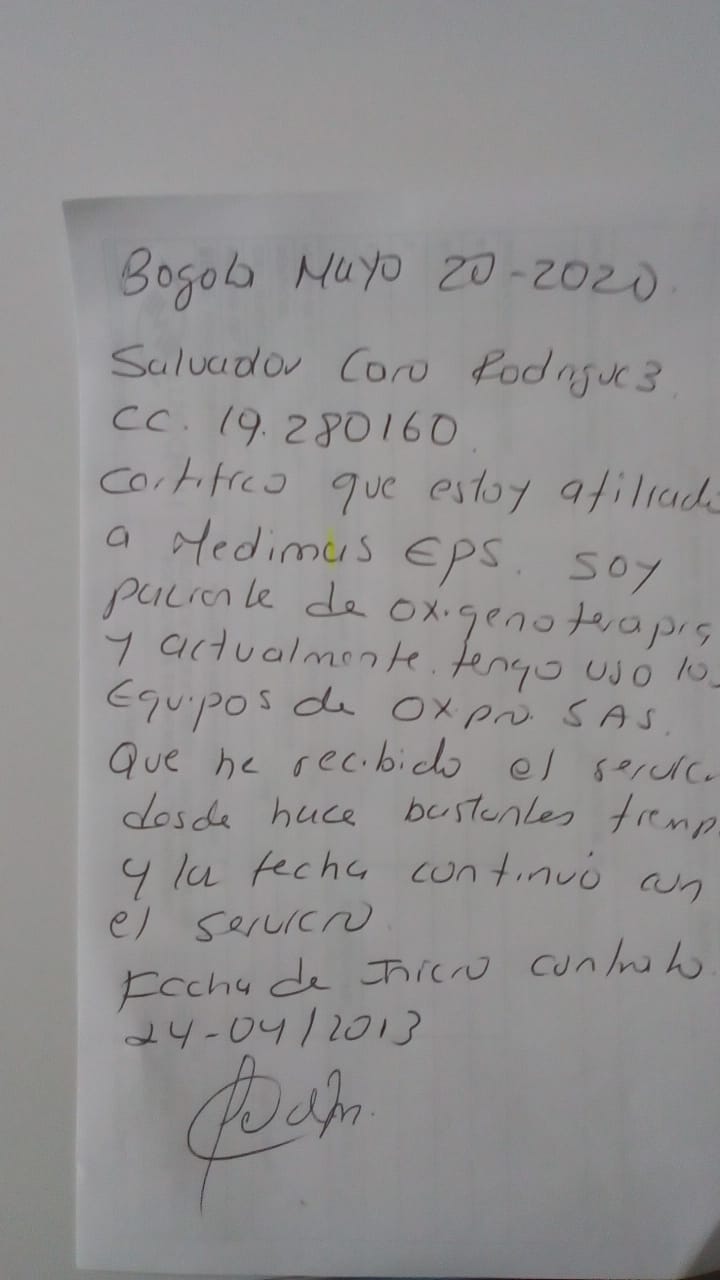 Bogota Mayo 20-2020.
Salvador Caro Rodriguez.
CC. 19.280160.
Certifico que estoy afiliado
a Medimas EPS. Soy
paciente de oxigenoterapia
y actualmente. tengo uso los
Equipos de Oxpro. SAS.
Que he recibido el servic
desde hace bastantes tiemp
y la fecha continuó con
el servicio
Fecha de Inicio contrato.
24-04/2013